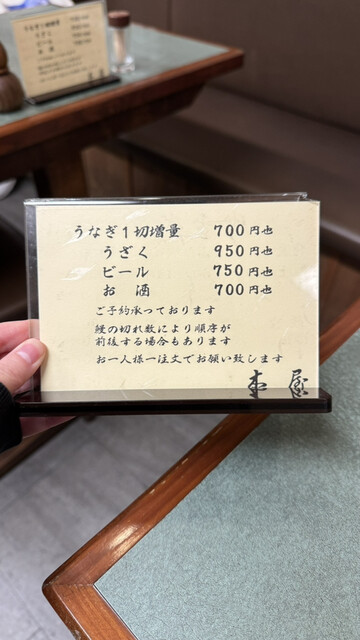 うなぎ1切増量 700円也
うざく 950円也
ビール 750円也
お酒 700円也
ご予約承っております
鰻の切れ数により順序が
前後する場合もあります
お一人様一注文でお願い致します
本屋